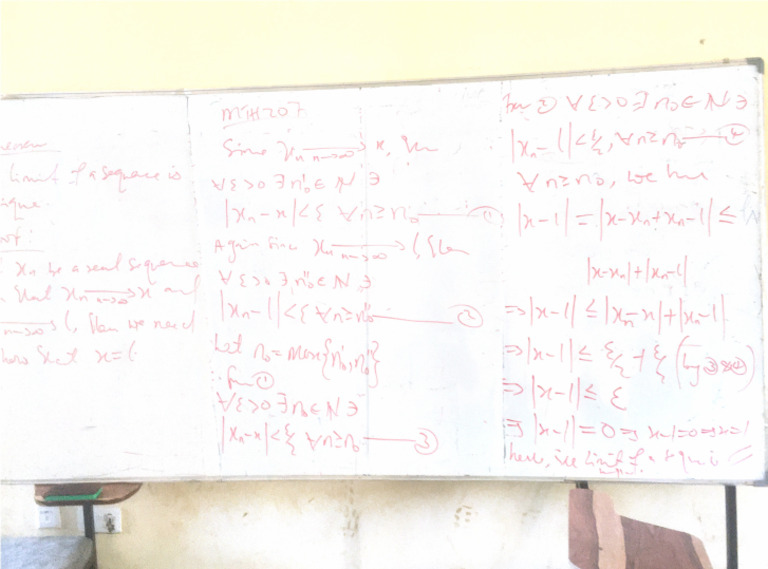 limit of a sequence is
xₙ be a real sequence
that xₙ →ₙ→∞ x and
→ₙ→∞ l, then we need
show that x = l.
MTH207
Since xₙ →ₙ→∞ x, then
∀ε>0 ∃n₀'∈ℕ ∋
|xₙ-x|<ε ∀n≥n₀' — ①
Again since xₙ →ₙ→∞ l, then
∀ε>0 ∃n₀''∈ℕ ∋
|xₙ-l|<ε ∀n≥n₀'' — ②
Let n₀=max{n₀',n₀''}
from ①
∀ε>0 ∃n₀∈ℕ ∋
|xₙ-x|<ε/2 ∀n≥n₀ — ③
from ② ∀ε>0 ∃n₀∈ℕ ∋
|xₙ-l|<ε/2, ∀n≥n₀ — ④
∀n≥n₀, we have
|x-l|=|x-xₙ+xₙ-l|≤
|x-xₙ|+|xₙ-l|
⇒|x-l|≤|xₙ-x|+|xₙ-l|
⇒|x-l|≤ε/2+ε/2 (by ③ & ④)
⇒|x-l|≤ε
⇒|x-l|=0⇒x-l=0⇒x=l
limit of a